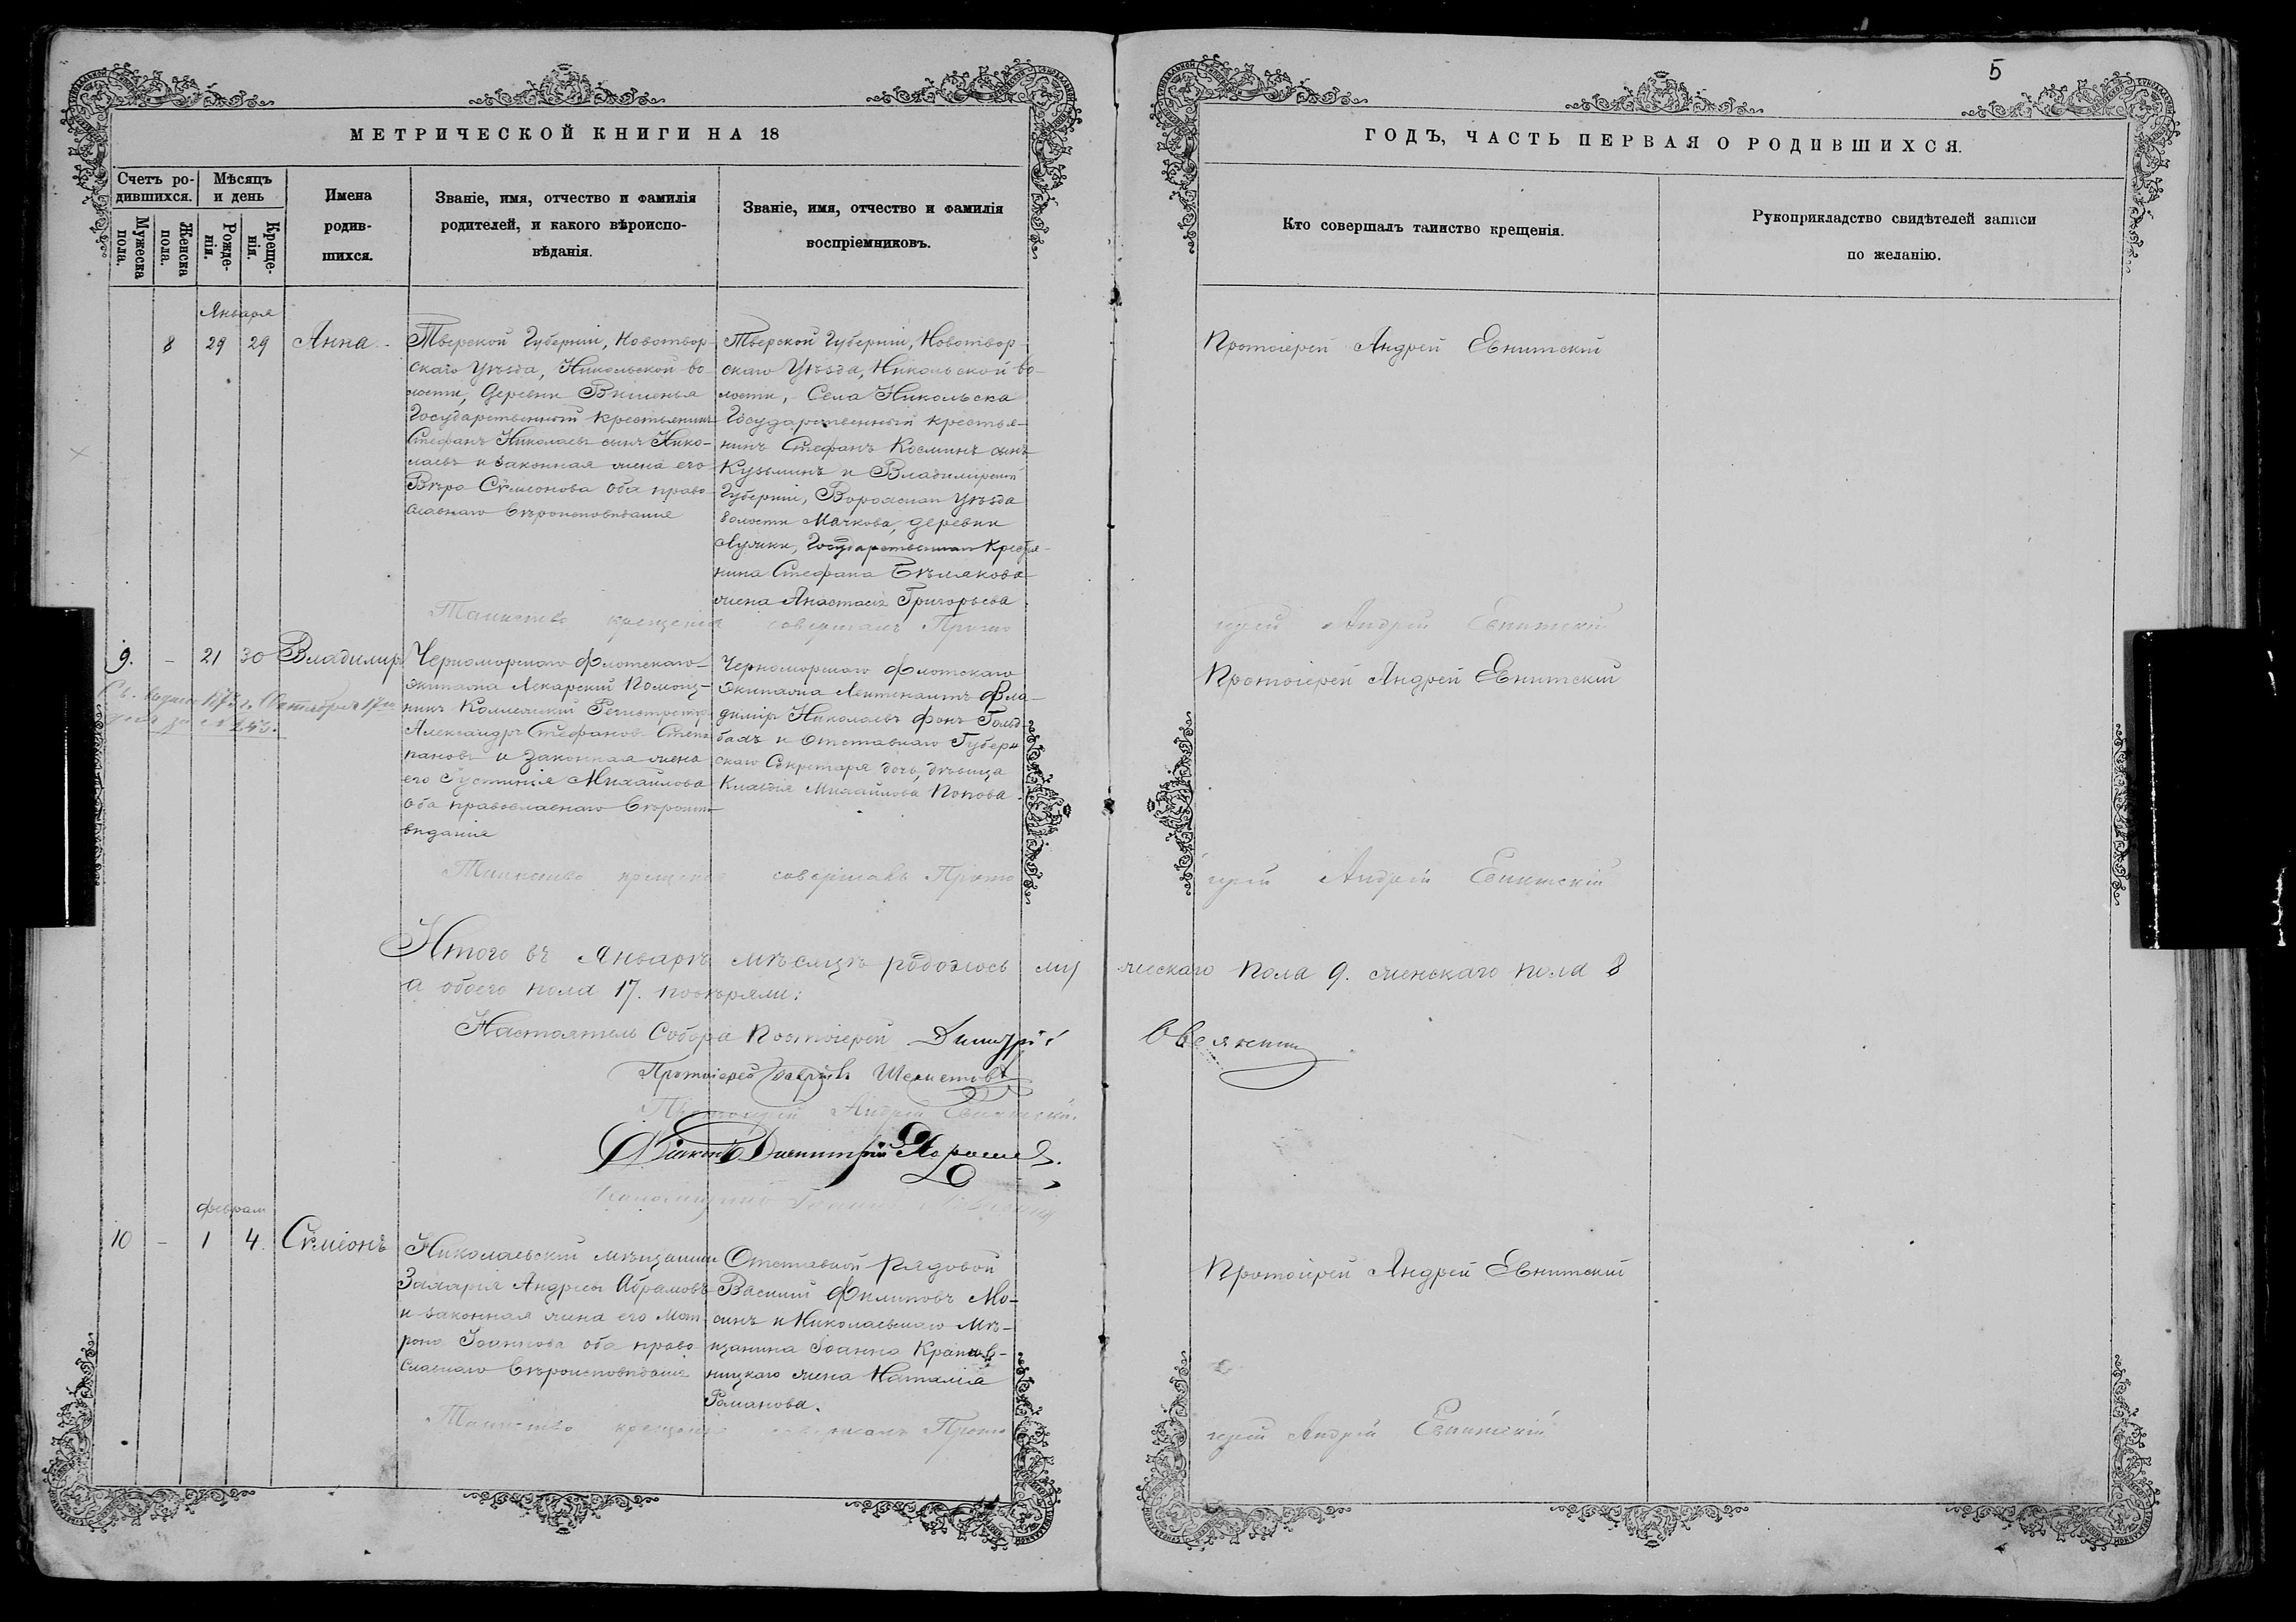 5
МЕТРИЧЕСКОЙ КНИГИ НА 18
ГОДЪ, ЧАСТЬ ПЕРВАЯ О РОДИВШИХСЯ.
Счетъ ро-
дившихся.
Мѣсяцъ
и день
Мужеска
пола.
Женска
пола.
Рожде-
нія.
Креще-
нія.
Имена
родив-
шихся.
Званіе, имя, отчество и фамилія
родителей, и какого вѣроиспо-
вѣданія.
Званіе, имя, отчество и фамилія
воспріемниковъ.
Кто совершалъ таинство крещенія.
Рукоприкладство свидѣтелей записи
по желанію.
Января
8 29 29 Анна
Тверской Губерніи, Новотвор-
скаго Уѣзда, Никольской во-
лости, деревни
Государственный крестьянинъ
Стефанъ Николаевъ сынъ Нико-
лаевъ и законная жена его
Вѣра Сѵмеонова оба право
славнаго вѣроисповѣданія
Тверской Губерніи, Новотвор-
скаго Уѣзда, Никольской во-
лости, Села Никольска
Государственный крестья-
нинъ Стефанъ Косминъ сынъ
Кузьминъ и Владимірской
Губерніи, Уѣзда
волости Мачкова, деревни
Государственнаго Крестья-
нина Стефана Бѣлякова
жена Анастасія Григорьева
Протоіерей Андрей Евнитскій
Таинство крещенія совершалъ Прото
іерей Андрей Евнитскій
9. - 21 30 Владимиръ
Черноморскаго флотскаго
экипажа Лекарскій Помощ-
никъ Коллежскій Регистраторъ
Александръ Стефановъ Степ
пановъ и законная жена
его Іустинія Михаилова
оба православнаго вѣроиспо-
вѣданія
Черноморскаго флотскаго
экипажа Лейтенантъ Вла-
диміръ Николаевъ фонъ Гольд-
бахъ и Отставнаго Губерн
скаго Секретаря дочь, дѣвица
Клавдія Михаилова Попова.
Протоіерей Андрей Евнитскій
Таинство крещенія совершалъ Прото
іерей Андрей Евнитскій
Итого въ Январѣ мѣсяцѣ родилось му жескаго пола 9. женскаго пола 8
а обоего пола 17. повѣряли:
Настоятель Собора Протоіерей Димитрій
Протоіерей
Протоіерей Андрей Евнитскій.
Діаконъ Димитрій
Февраля
10 - 1 4. Сѵмеонъ
Николаевскій мѣщанинъ
Захарія Андреевъ Абрамовъ
и законная жена его Мат
рона Іоаннова оба право
славнаго вѣроисповѣданія
Отставной рядовой
Василій Филиповъ Мо-
синъ и Николаевскаго Мѣ-
щанина Іоанна
ницкаго жена Наталія
Романова.
Протоіерей Андрей Евнитскій
Таинство крещенія совершалъ Прото
іерей Андрей Евнитскій